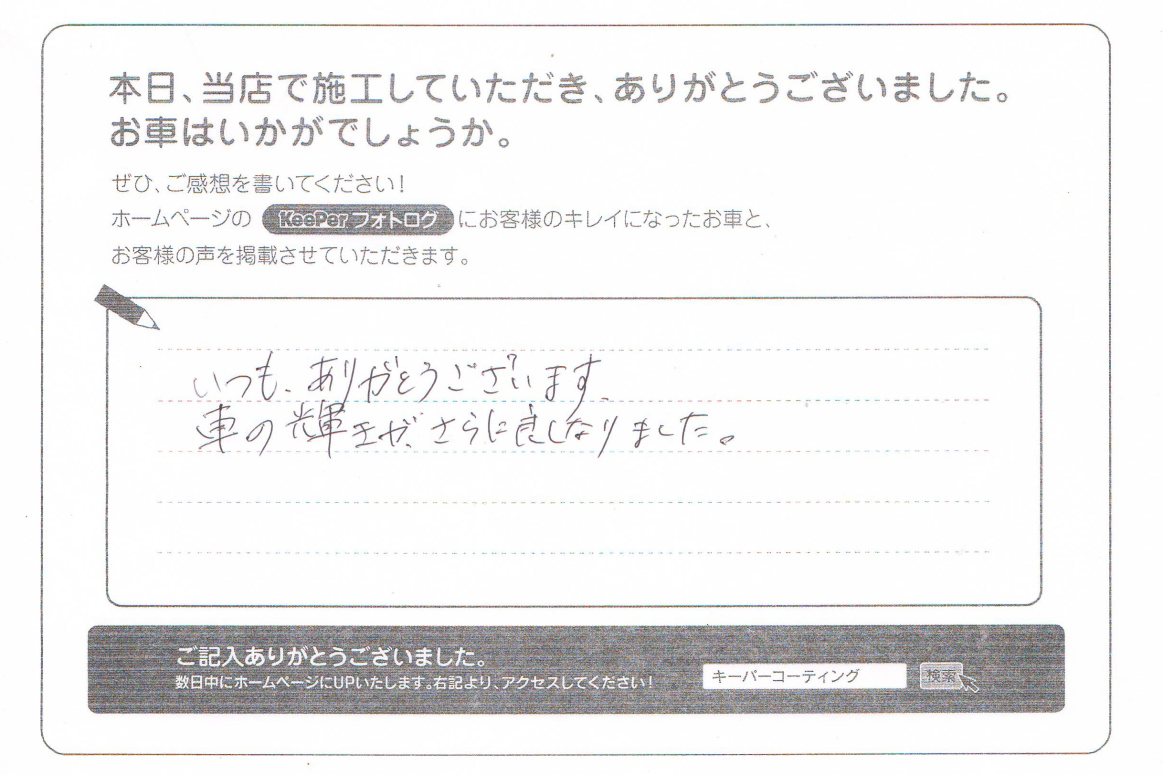 本日、当店で施工していただき、ありがとうございました。
お車はいかがでしょうか。
ぜひ、ご感想を書いてください！
ホームページの KeePer フォトログ にお客様のキレイになったお車と、
お客様の声を掲載させていただきます。
いつも、ありがとうございます、
車の輝きが、さらに良くなりました。
ご記入ありがとうございました。
数日中にホームページにUPいたします。右記より、アクセスしてください！
キーパーコーティング 検索